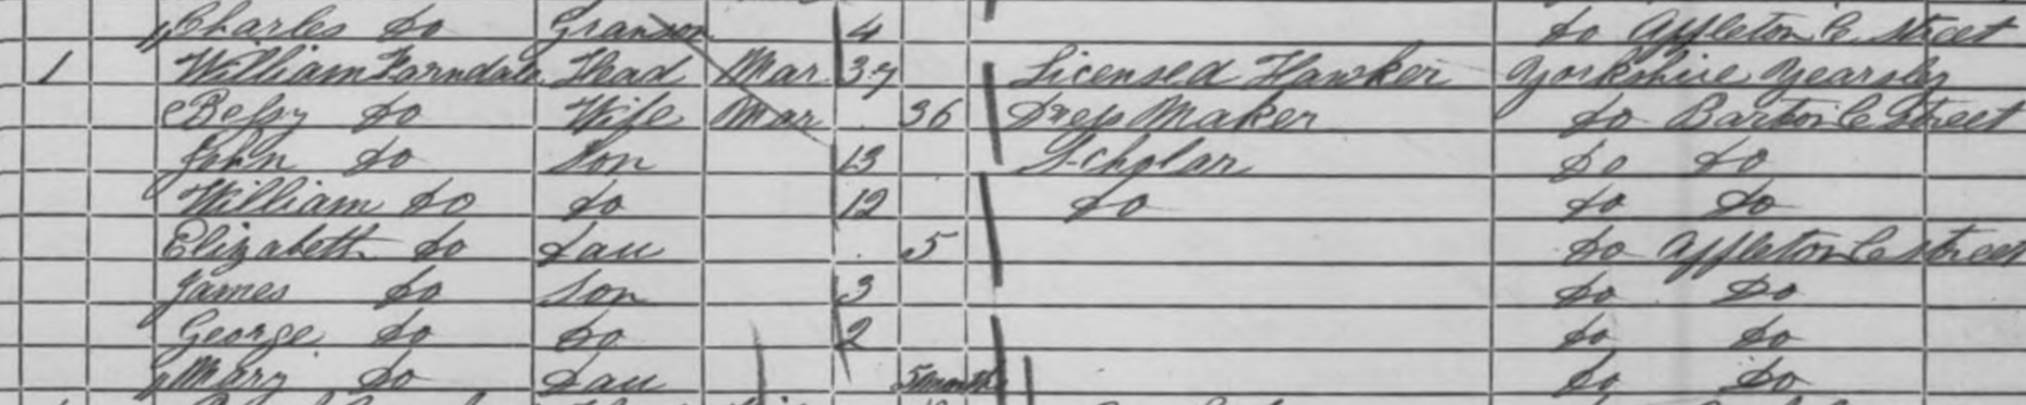 Charles do Granson 4 do Appleton le Street
1 William Farndale Head Mar 37 Licensed Hawker Yorkshire Yearsley
Betsy do Wife Mar 36 Dress Maker do Barton le Street
John do Son 13 Scholar do do
William do do 12 do do do
Elizabeth do Dau 5 do Appleton le Street
James do Son 3 do do
George do do 2 do do
Mary do Dau 5 months do do